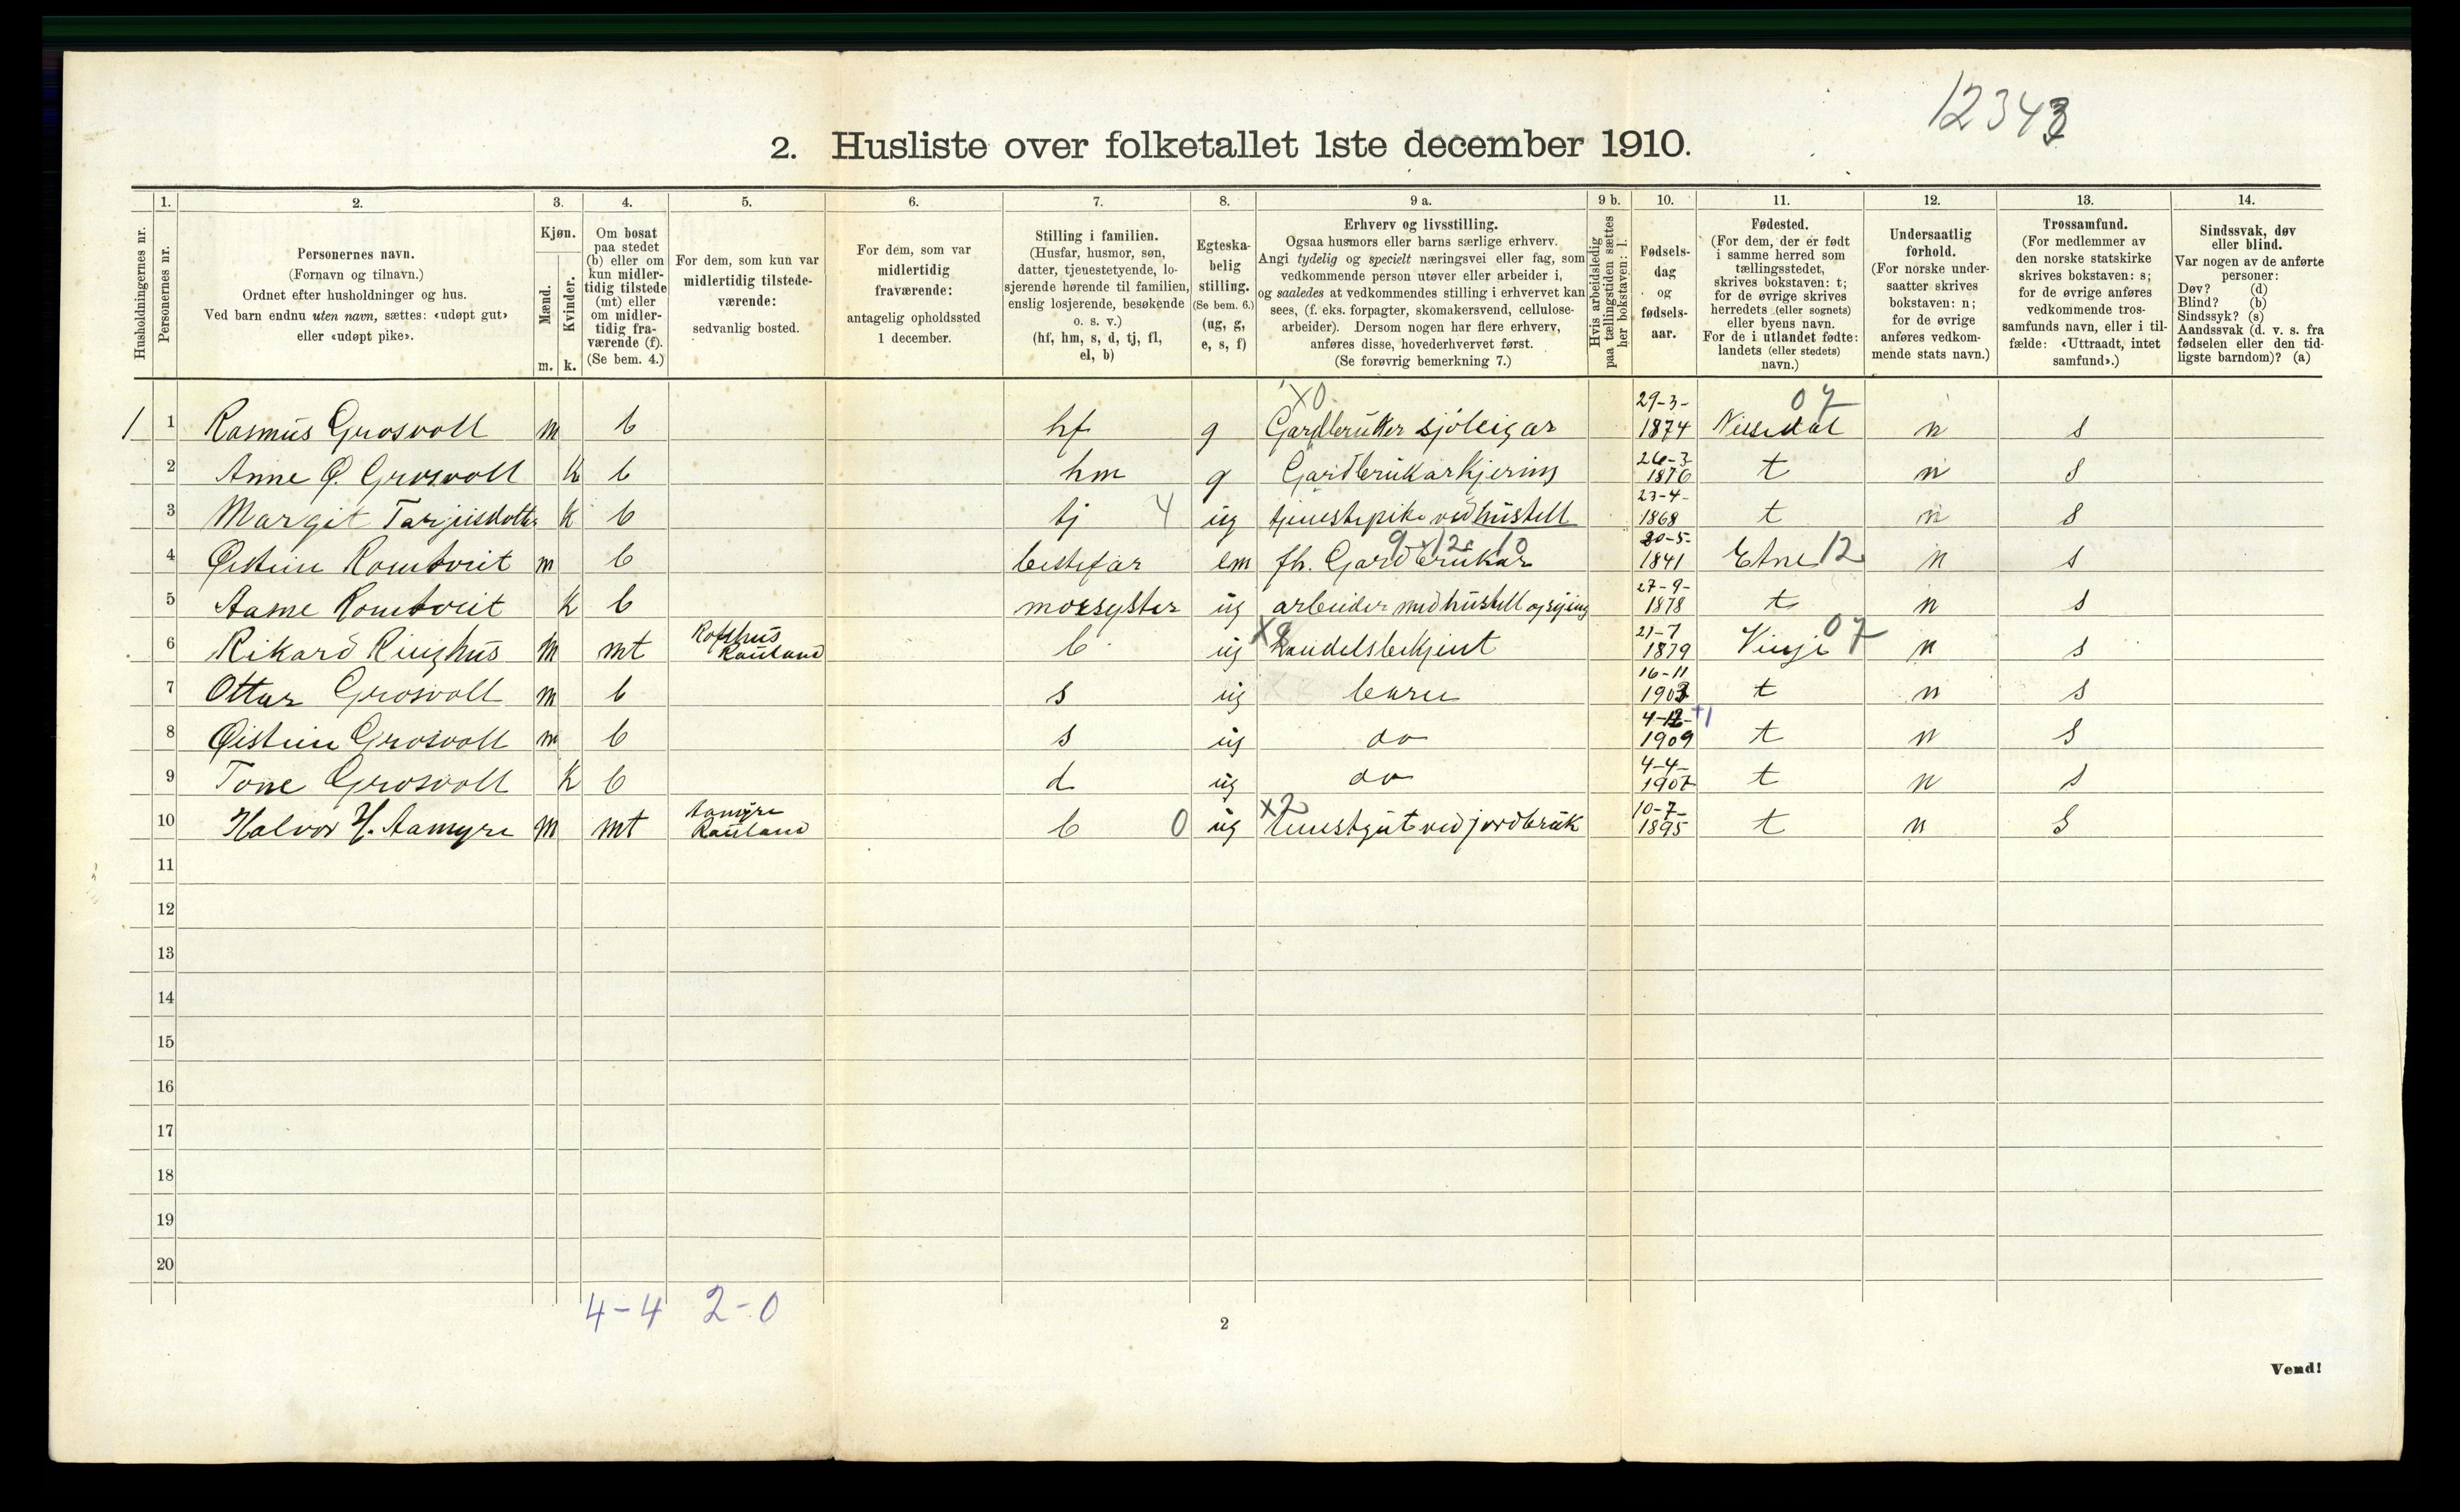 12343
2. Husliste over folketallet 1ste december 1910.
Husholdningernes nr.
1.
Personernes nr.
2.
Personernes navn.
(Fornavn og tilnavn.)
Ordnet efter husholdninger og hus.
Ved barn endnu uten navn, sættes: «udøpt gut»
eller «udøpt pike».
3.
Kjøn.
Mænd.
Kvinder.
m. k.
4.
Om bosat
paa stedet
(b) eller om
kun midler-
tidig tilstede
(mt) eller
om midler-
tidig fra-
værende (f).
(Se bem. 4.)
5.
For dem, som kun var
midlertidig tilstede-
værende:
sedvanlig bosted.
6.
For dem, som var
midlertidig
fraværende:
antagelig opholdssted
1 december.
7.
Stilling i familien.
(Husfar, husmor, søn,
datter, tjenestetyende, lo-
sjerende hørende til familien,
enslig losjerende, besøkende
o. s. v.)
(hf, hm, s, d, tj, fl,
el, b)
8.
Egteska-
belig
stilling.
(Se bem. 6.)
(ug, g,
e, s, f)
9 a.
Erhverv og livsstilling.
Ogsaa husmors eller barns særlige erhverv.
Angi tydelig og specielt næringsvei eller fag, som
vedkommende person utøver eller arbeider i,
og saaledes at vedkommendes stilling i erhvervet kan
sees, (f. eks. forpagter, skomakersvend, cellulose-
arbeider). Dersom nogen har flere erhverv,
anføres disse, hovederhvervet først.
(Se forøvrig bemerkning 7.)
9 b.
Hvis arbeidsledig
paa tællingstiden sættes
her bokstaven: l.
10.
Fødsels-
dag
og
fødsels-
aar.
11.
Fødested.
(For dem, der er født
i samme herred som
tællingsstedet,
skrives bokstaven: t;
for de øvrige skrives
herredets (eller sognets)
eller byens navn.
For de i utlandet fødte:
landets (eller stedets)
navn.)
12.
Undersaatlig
forhold.
(For norske under-
saatter skrives
bokstaven: n;
for de øvrige
anføres vedkom-
mende stats navn.)
13.
Trossamfund.
(For medlemmer av
den norske statskirke
skrives bokstaven: s;
for de øvrige anføres
vedkommende tros-
samfunds navn, eller i til-
fælde: «Uttraadt, intet
samfund».)
14.
Sindssvak, døv
eller blind.
Var nogen av de anførte
personer:
Døv? (d)
Blind? (b)
Sindssyk? (s)
Aandssvak (d. v. s. fra
fødselen eller den tid-
ligste barndom)? (a)
X0 29-3- 07
1 1 Rasmus Grosvoll m b hf g Gardbruker sjöleigar 1874 Nissedal n s
2 Anne Ø. Grosvoll k b hm g Gardbrukarkjering 26-3 1876 t n s
3 Margit Tarjeisdotter k b tj 4 ug tjenestepike ved hustell 23-4- 1868 t n s
4 Øistein Romtveit m b bestefar em fh. Gardbrukar 1841 Etne 12 n s
5 Aasne Romtveit k b morsyster ug arbeider med hustell og sying 27-9- 1878 t n s
6 Rikard Ringhus m mt Rofshus Rauland b ug X8 handelsbetjent 21-7 1879 Vinje 07 n s
7 Ottar Grosvoll m b s ug barn 16-11 1903 t n s
8 Øistein Grosvoll m b s ug do 4-12- +1 1909 t n s
9 Tone Grosvoll k b d ug do 4-4- 1907 t n s
10 Halvor H. Aamyre m mt Aamyre Rauland b 0 ug X2 tenestgut ved jordbruk 10-7- 1895 t n s
11
12
13
14
15
16
17
18
19
20
4-4 2-0
2
Vend!